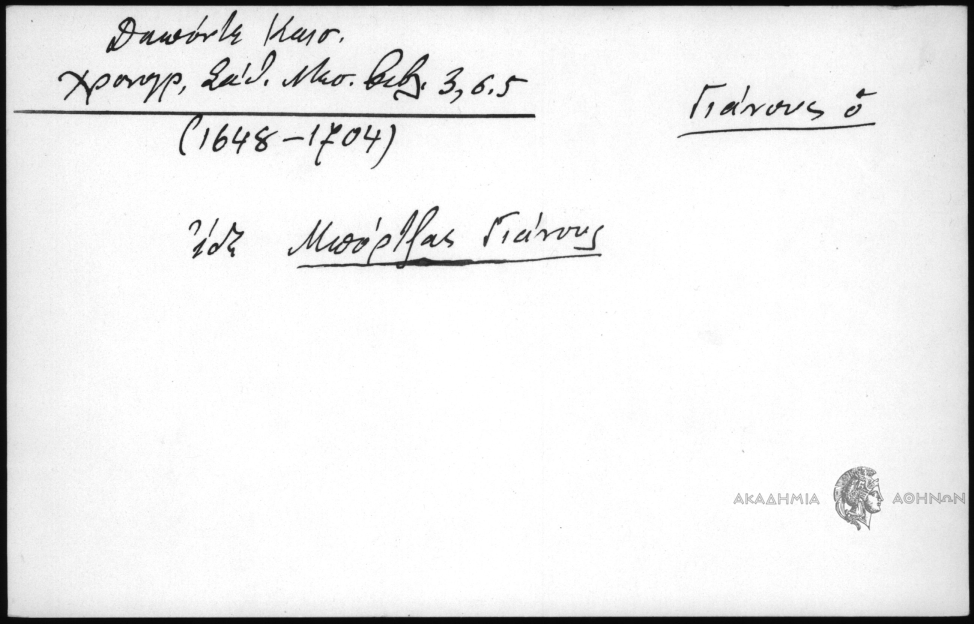 Δαπόντε Καισ.
Χρονογρ, Σάθ. Μεσ. Βιβλ. 3, σ. 5
(1648-1704)
Γιάνους ὁ
ἰδὲ Μπόρτζας Γιάνους
ΑΚΑΔΗΜΙΑ ΑΘΗΝΩΝ